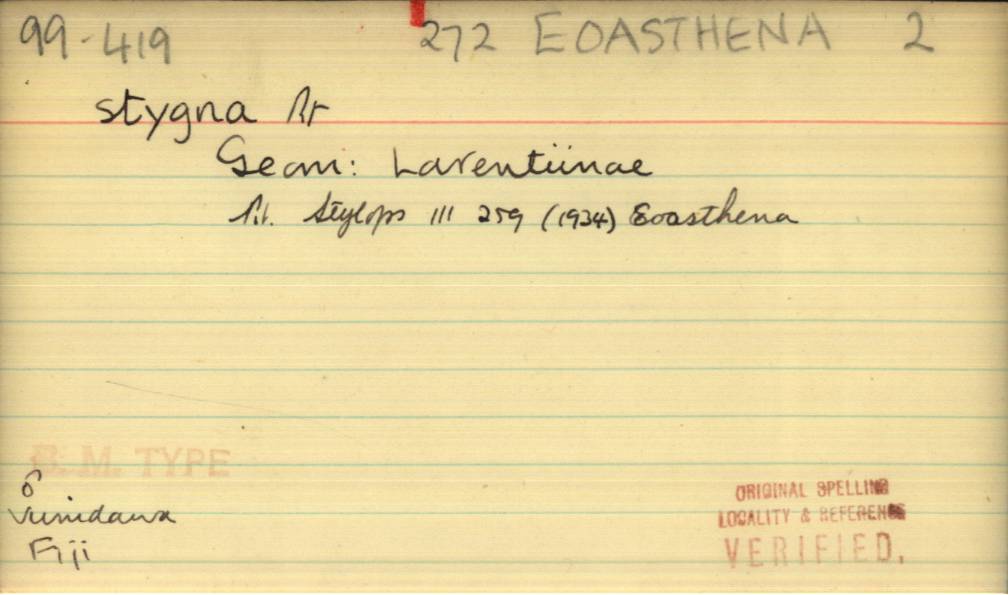 99-419 272 EOASTHENA 2
stygna Rt
Geom: Larentiinae
Rt. Stylops III 259 (1934) Eoasthena
B. M. TYPE
♂
Vunidawa
Fiji
ORIGINAL SPELLING
LOCALITY & REFERENCE
VERIFIED.